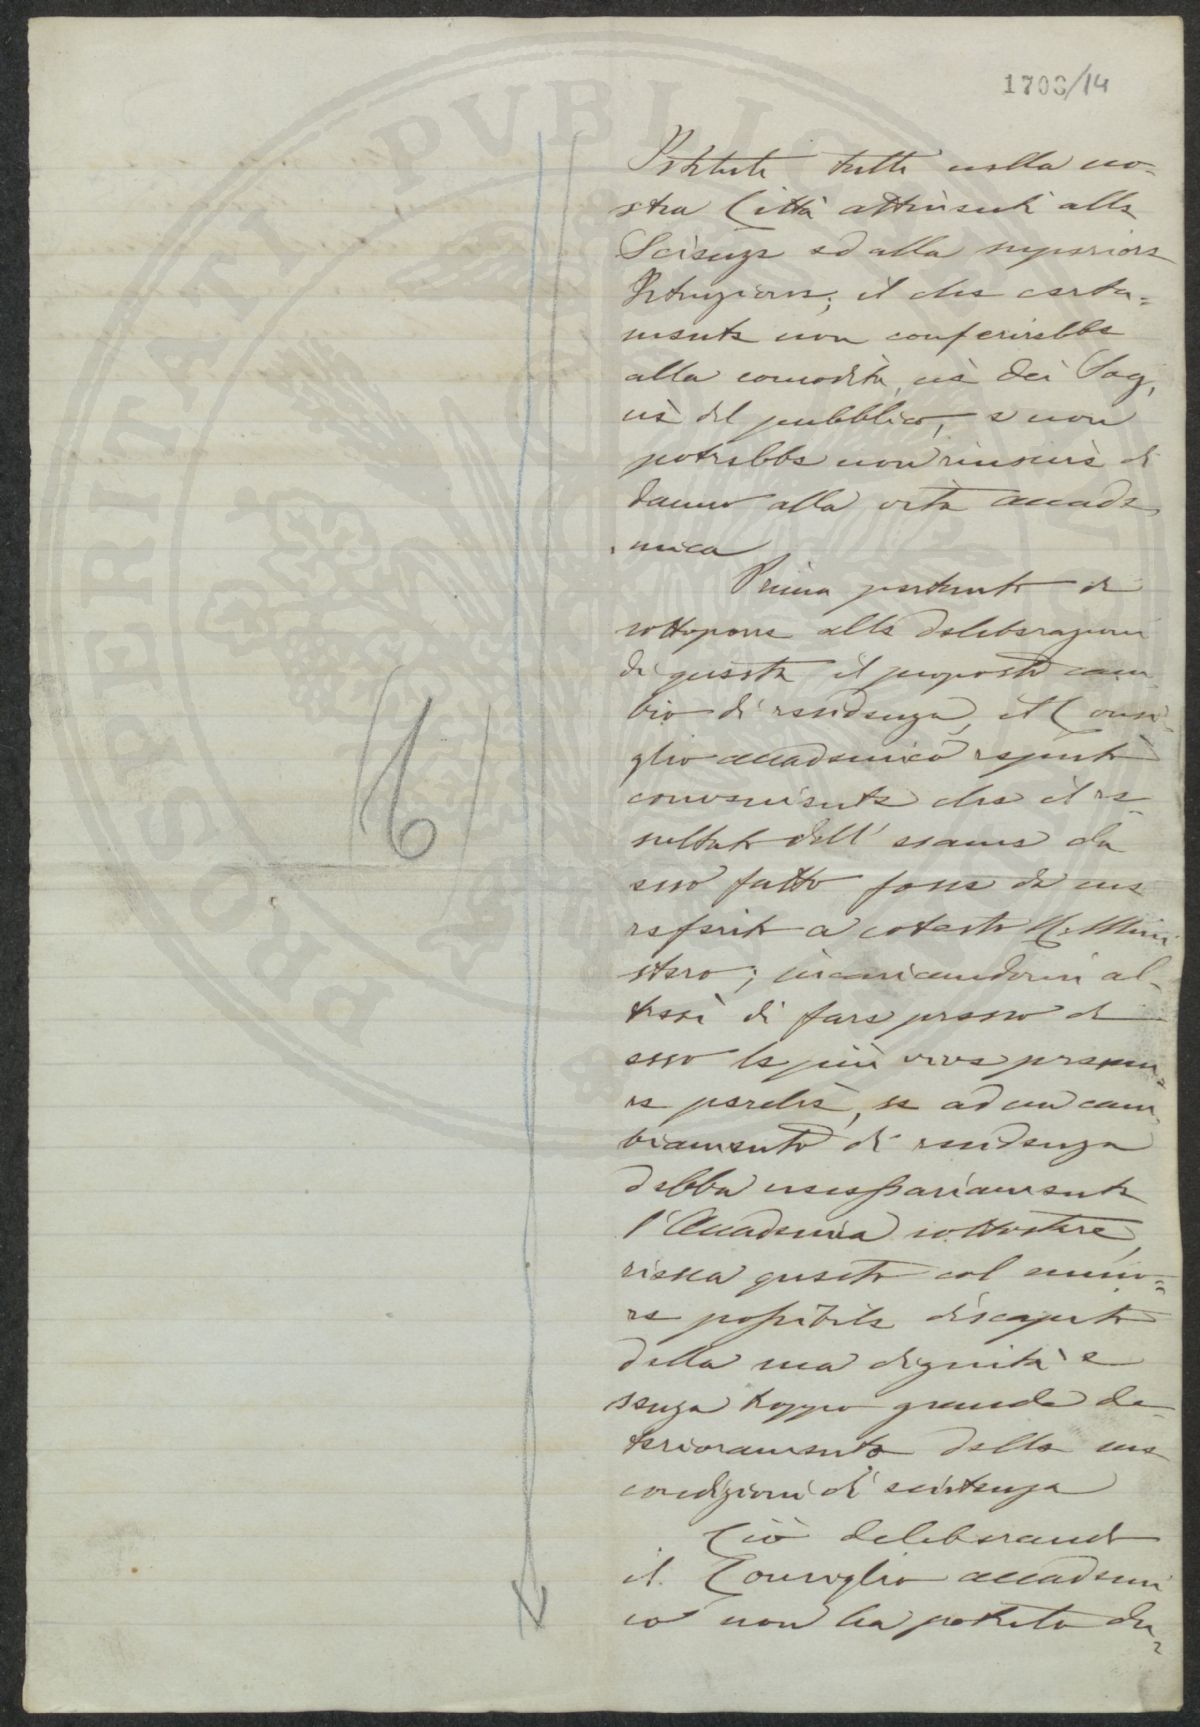 1708/14
Istituti tutti nella no-
stra Città attinenti alla
Scienza ed alla superiore
Istruzione; il che certa=
mente non conferirebbe
alla comodità, nè dei Soci,
nè del pubblico, e non
potrebbe non riuscire di
danno alla vita accade
mica
Prima pertanto di
sottoporre alle deliberazioni
di questa il proposto cam
bio di residenza, il Consi
glio accademico reputò
conveniente che il re
sultato dell' esame da
esso fatto fosse da me
referito a cotesto R. Mini
stero; incaricandomi al-
tresì di fare presso di
esso le più vive premu=
re perchè, se ad un cam
biamento di residenza
debba necessariamente
l'Accademia sottostare,
riesca questo col mino=
re possibile discapito
della sua dignità e
senza troppo grande de
terioramento delle sue
condizioni di esistenza
Ciò deliberando
il Consiglio accademi
co non ha potuto du=
6
PROSPERITATI PUBLICAE